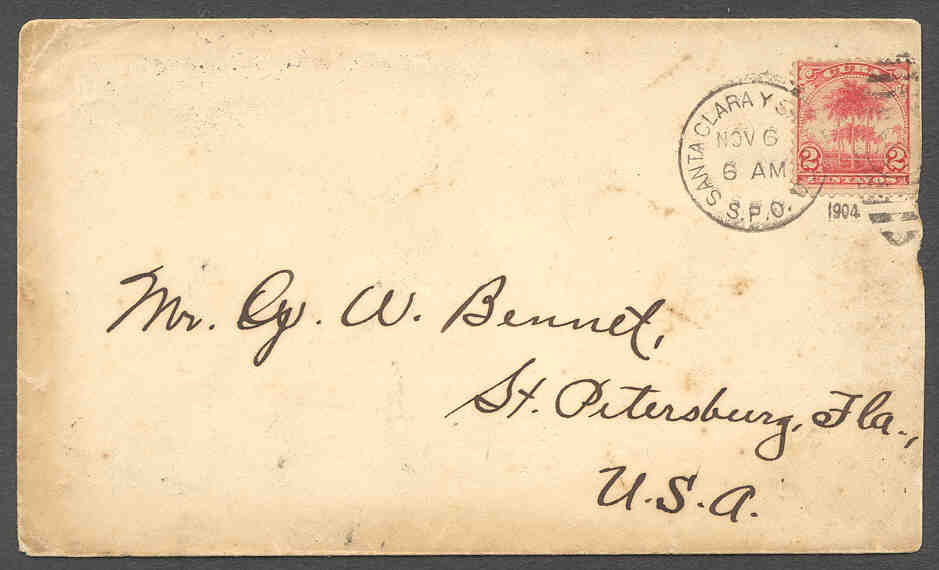 CUBA
SANTA CLARA Y
NOV 6
6 AM
S.P.O.
1904
2 2
CENTAVOS
Mr. Cy. W. Bennet,
St. Petersburg, Fla.,
U.S.A.